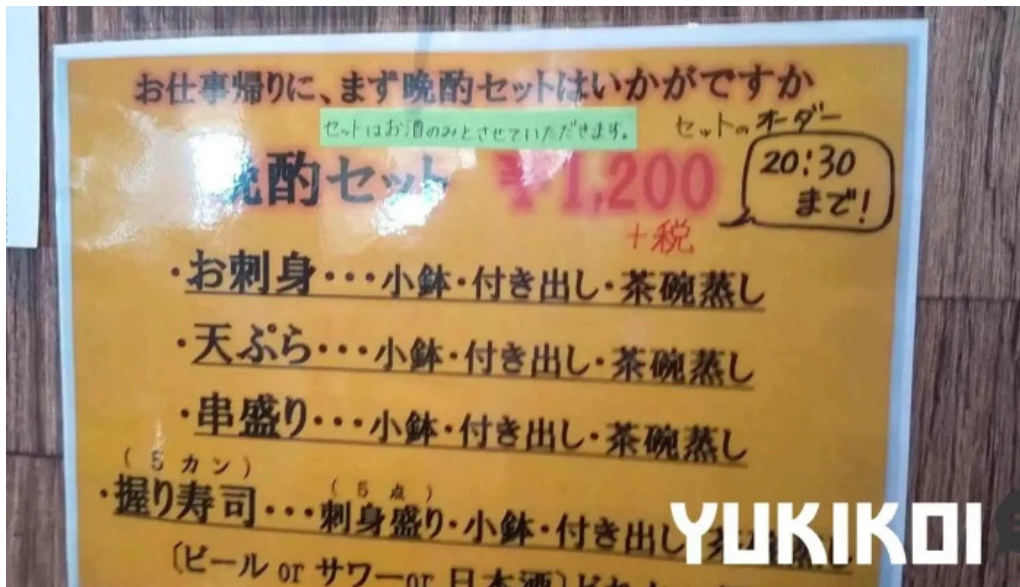 お仕事帰りに、まず晩酌セットはいかがですか
セットはお酒のみとさせていただきます。
セットのオーダー
20:30
まで!
晩酌セット ¥1,200
+税
・お刺身・・・小鉢・付き出し・茶碗蒸し
・天ぷら・・・小鉢・付き出し・茶碗蒸し
・串盛り・・・小鉢・付き出し・茶碗蒸し
(5カン) (5点)
・握り寿司・・・刺身盛り・小鉢・付き出し・茶碗蒸し
〔ビール or サワー or 日本酒〕
YUKIKOI